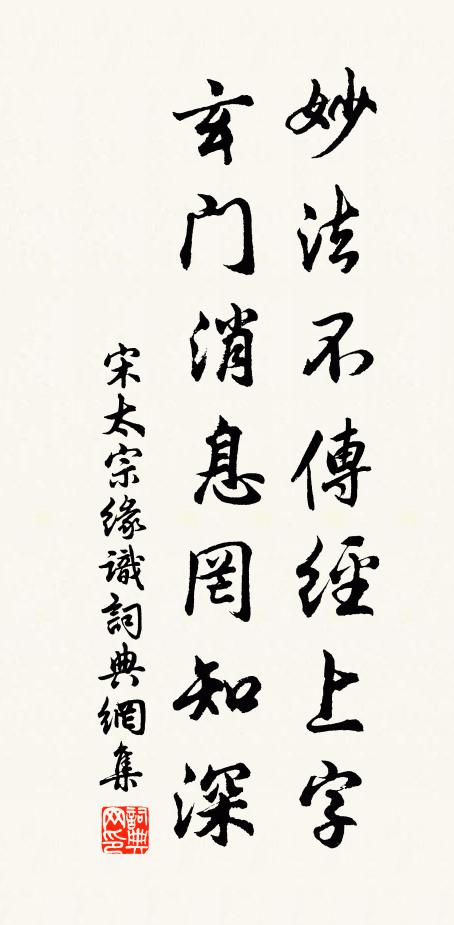 妙法不傳經上字
玄門消息罔知深
宋太宗緣識詞典網集
詞典網印